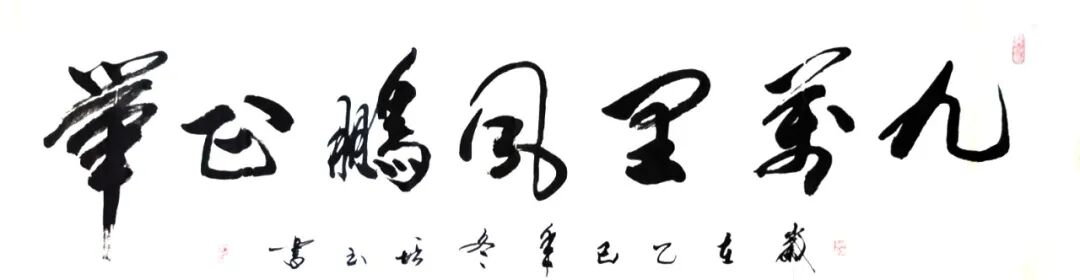 九萬里風鵬正舉
歲在乙巳年冬培玉書